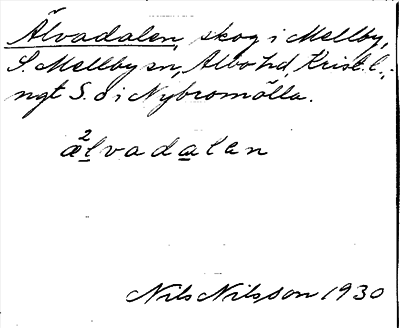 Älvadalen, skog i Mellby,
S. Mellby sn, Albo hd, Krist. l.,
ngt S. o i Nybromölla.
2
ælvadalen
Nils Nilsson 1930